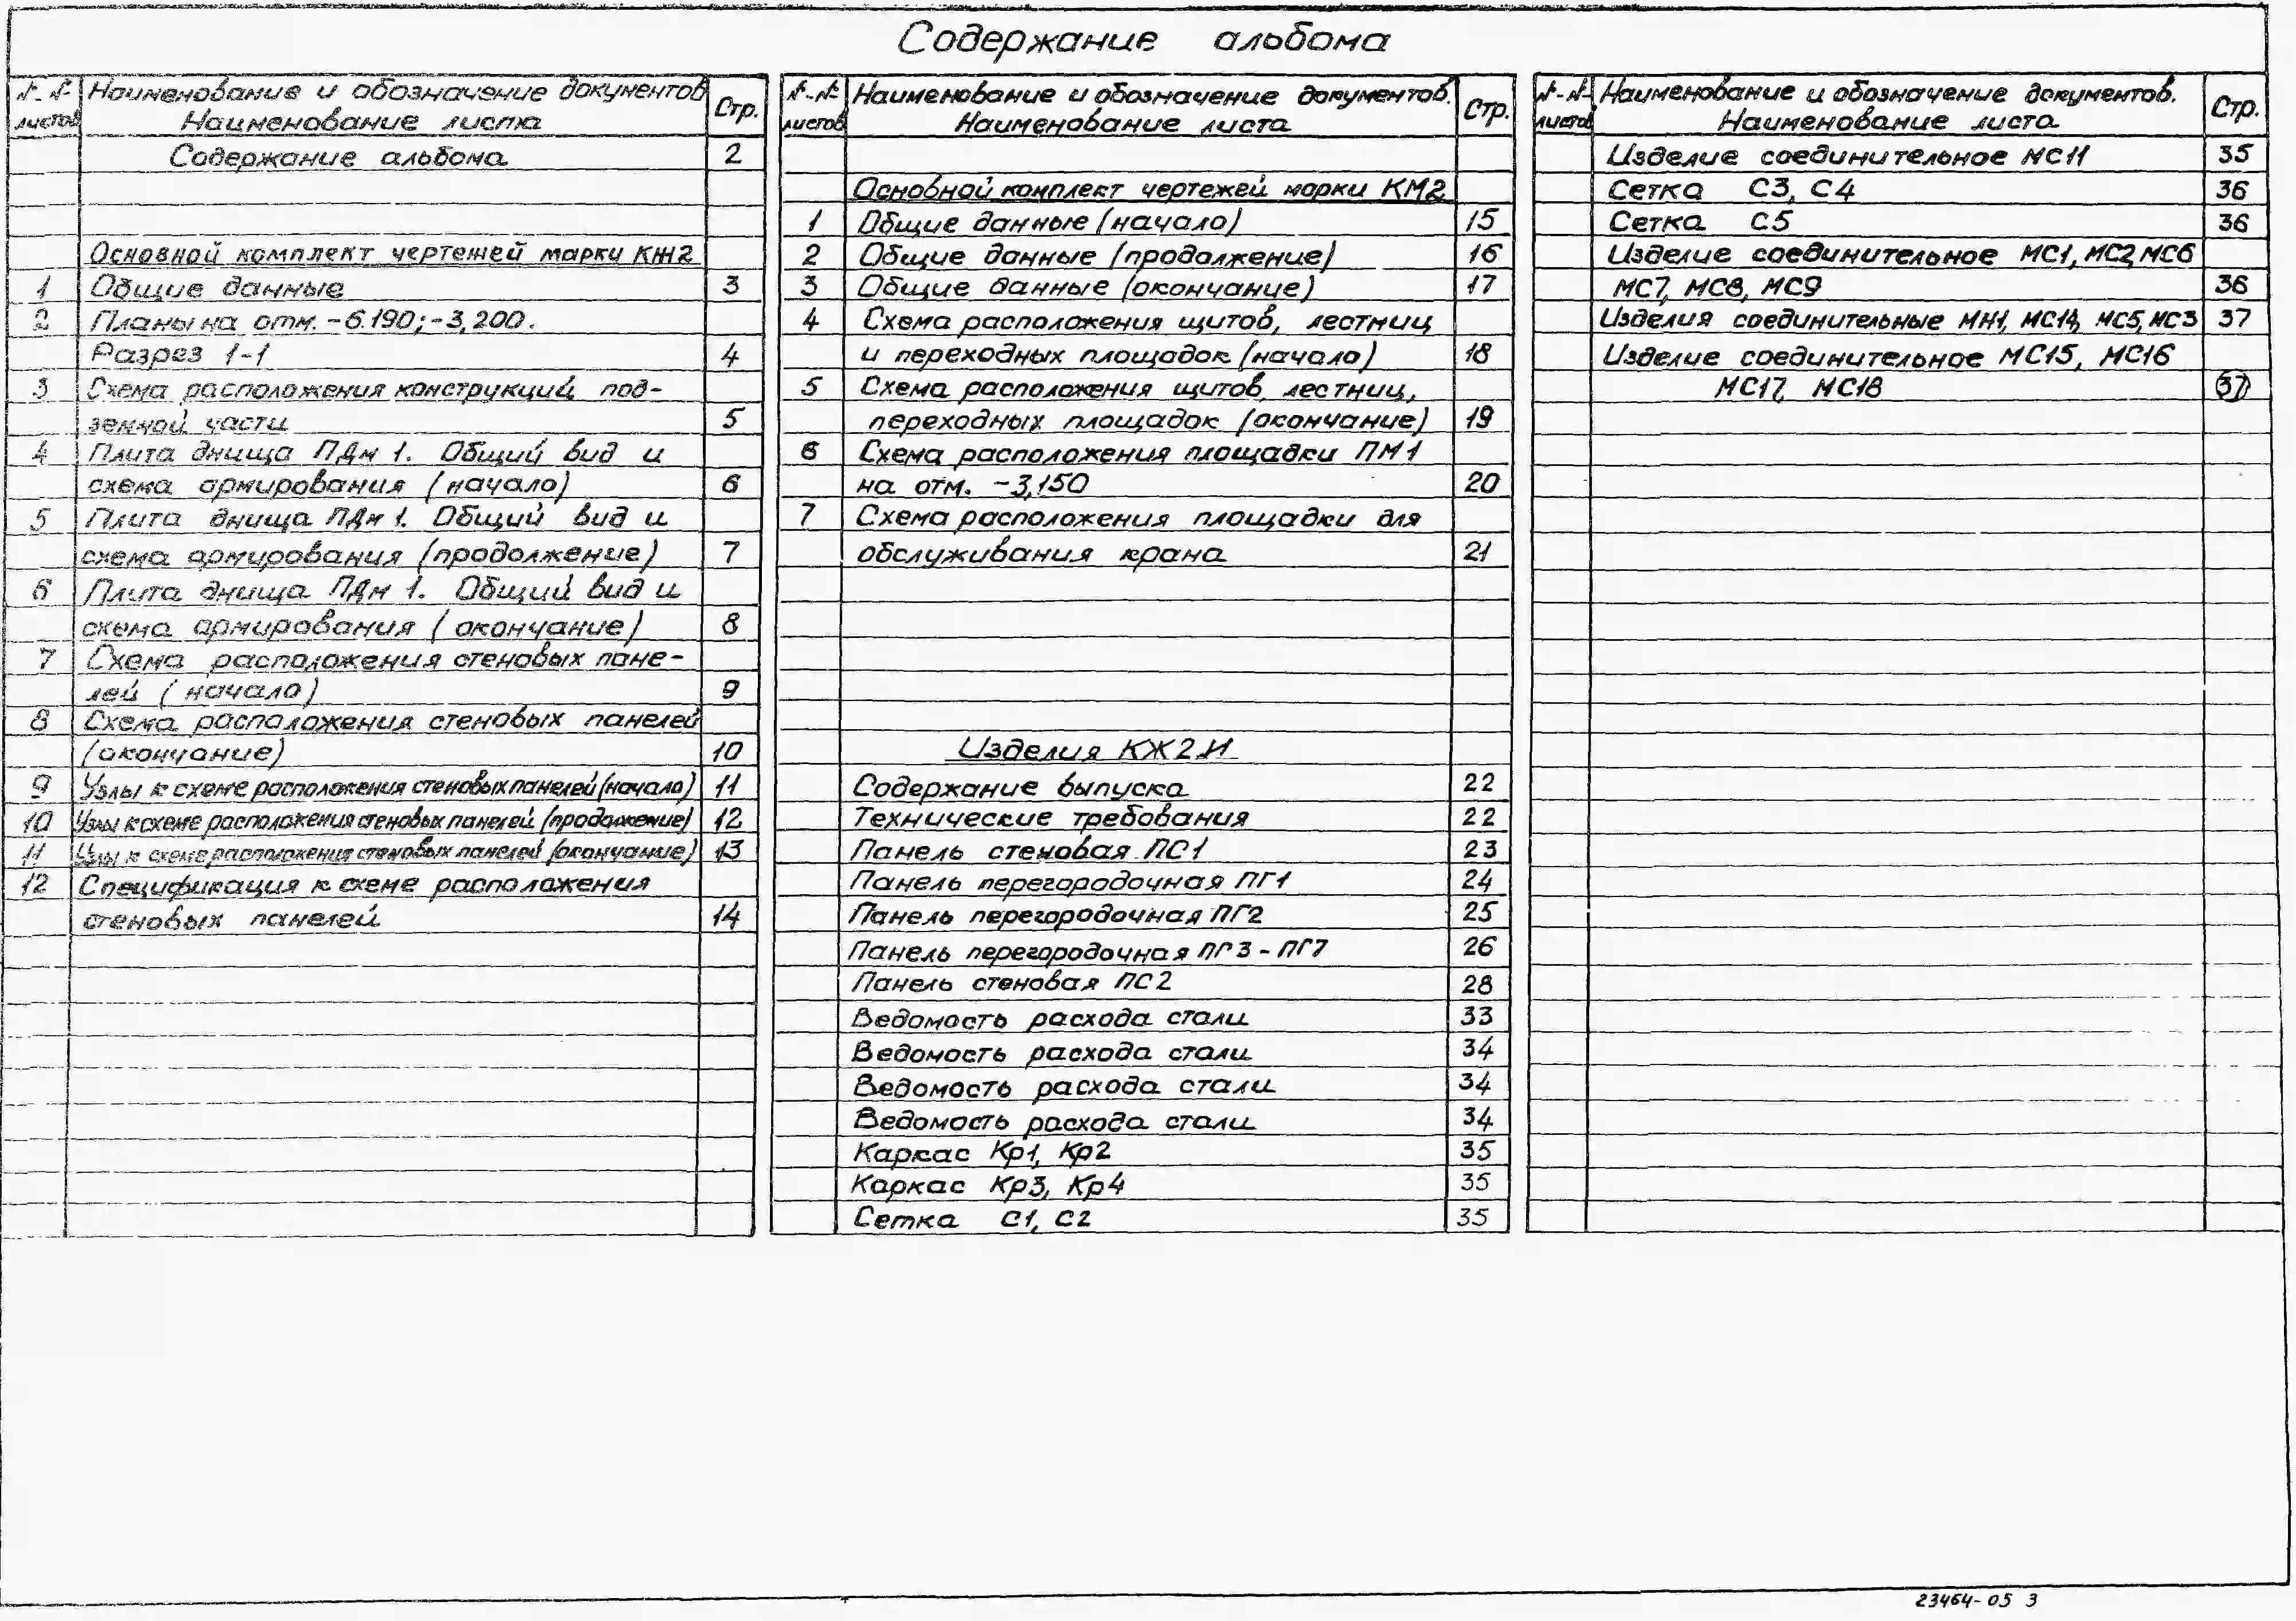 Содержание альбома
№-№ Наименование и обозначение документов Стр.
листов Наименование листа
Содержание альбома 2
Основной комплект чертежей марки КЖ2
1 Общие данные 3
2 Планы на отм. -6.190; -3,200.
Разрез 1-1 4
3 Схема расположения конструкций под-
земной части 5
4 Плита днища ПДм 1. Общий вид и
схема армирования (начало) 6
5 Плита днища ПДм 1. Общий вид и
схема армирования (продолжение) 7
6 Плита днища ПДм 1. Общий вид и
схема армирования (окончание) 8
7 Схема расположения стеновых пане-
лей (начало) 9
8 Схема расположения стеновых панелей
(окончание) 10
9 Узлы к схеме расположения стеновых панелей (начало) 11
10 Узлы к схеме расположения стеновых панелей (продолжение) 12
11 Узлы к схеме расположения стеновых панелей (окончание) 13
12 Спецификация к схеме расположения
стеновых панелей 14
№-№ Наименование и обозначение документов. Стр.
листов Наименование листа
Основной комплект чертежей марки КМ2
1 Общие данные (начало) 15
2 Общие данные (продолжение) 16
3 Общие данные (окончание) 17
4 Схема расположения щитов, лестниц
и переходных площадок (начало) 18
5 Схема расположения щитов, лестниц,
переходных площадок (окончание) 19
6 Схема расположения площадки ПМ1
на отм. -3,150 20
7 Схема расположения площадки для
обслуживания крана 21
Изделия КЖ2.И
Содержание выпуска 22
Технические требования 22
Панель стеновая ПС1 23
Панель перегородочная ПГ1 24
Панель перегородочная ПГ2 25
Панель перегородочная ПГ3-ПГ7 26
Панель стеновая ПС2 28
Ведомость расхода стали 33
Ведомость расхода стали 34
Ведомость расхода стали 34
Ведомость расхода стали 34
Каркас Кр1, Кр2 35
Каркас Кр3, Кр4 35
Сетка С1, С2 35
№-№ Наименование и обозначение документов. Стр.
листов Наименование листа
Изделие соединительное МС11 35
Сетка С3, С4 36
Сетка С5 36
Изделие соединительное МС1, МС2, МС6
МС7, МС8, МС9 36
Изделия соединительные МН1, МС14, МС5, МС3 37
Изделие соединительное МС15, МС16
МС17, МС18 37
23464-05 3